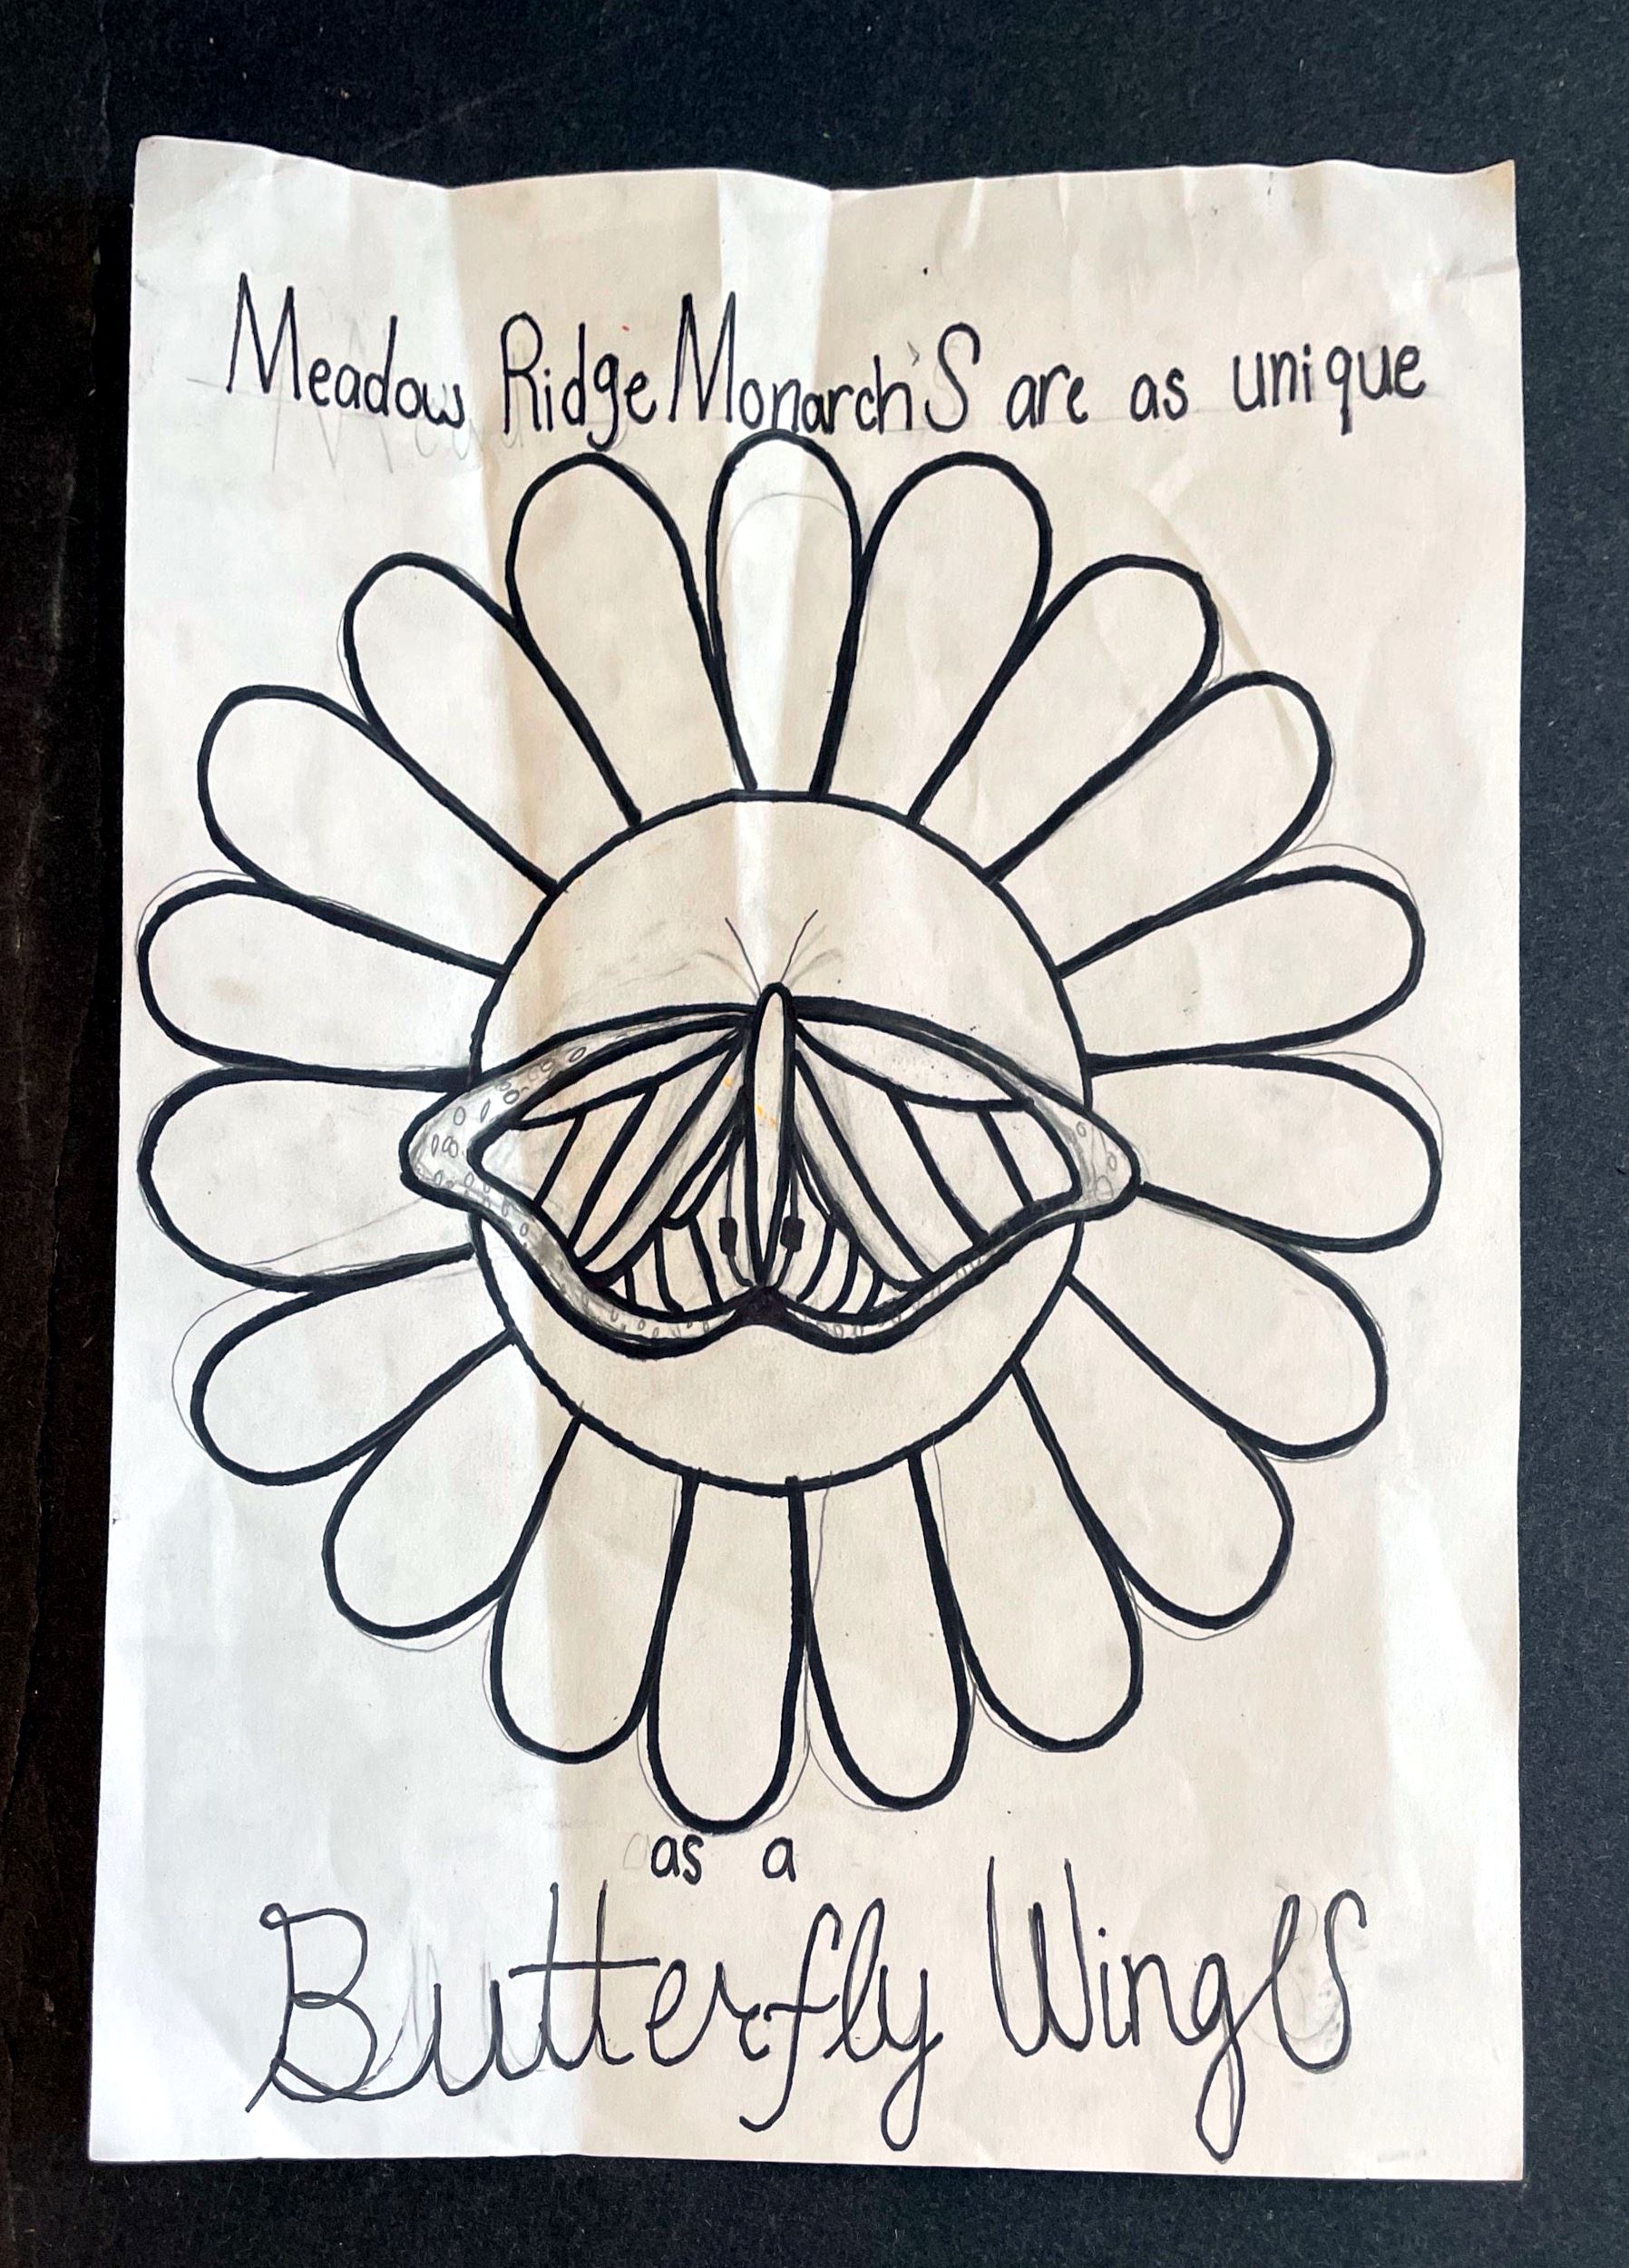 Meadow Ridge Monarch'S are as unique
as a
Butterfly Wings